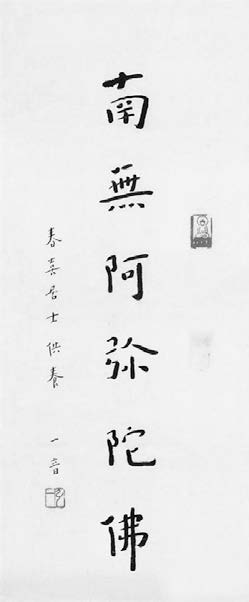 南無阿弥陀佛
春喜居士供養 一音